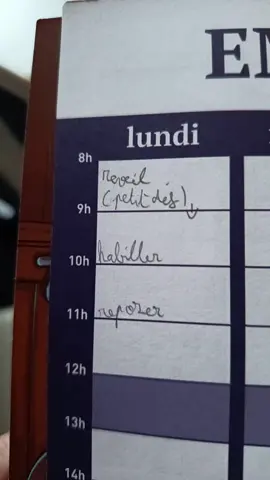 EM
lundi
8h
reveil
(petit dés)
9h
habiller
10h
reposer
11h
12h
13h
14h